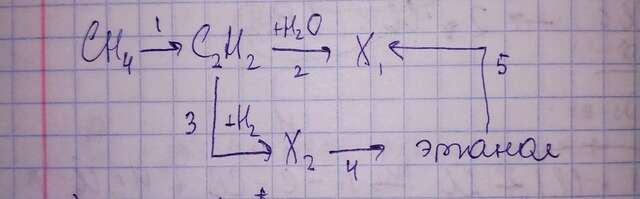 CH₄ —1→ C₂H₂ —+H₂O 2→ X₁ ← 5
3 +H₂ → X₂ —4→ этанол